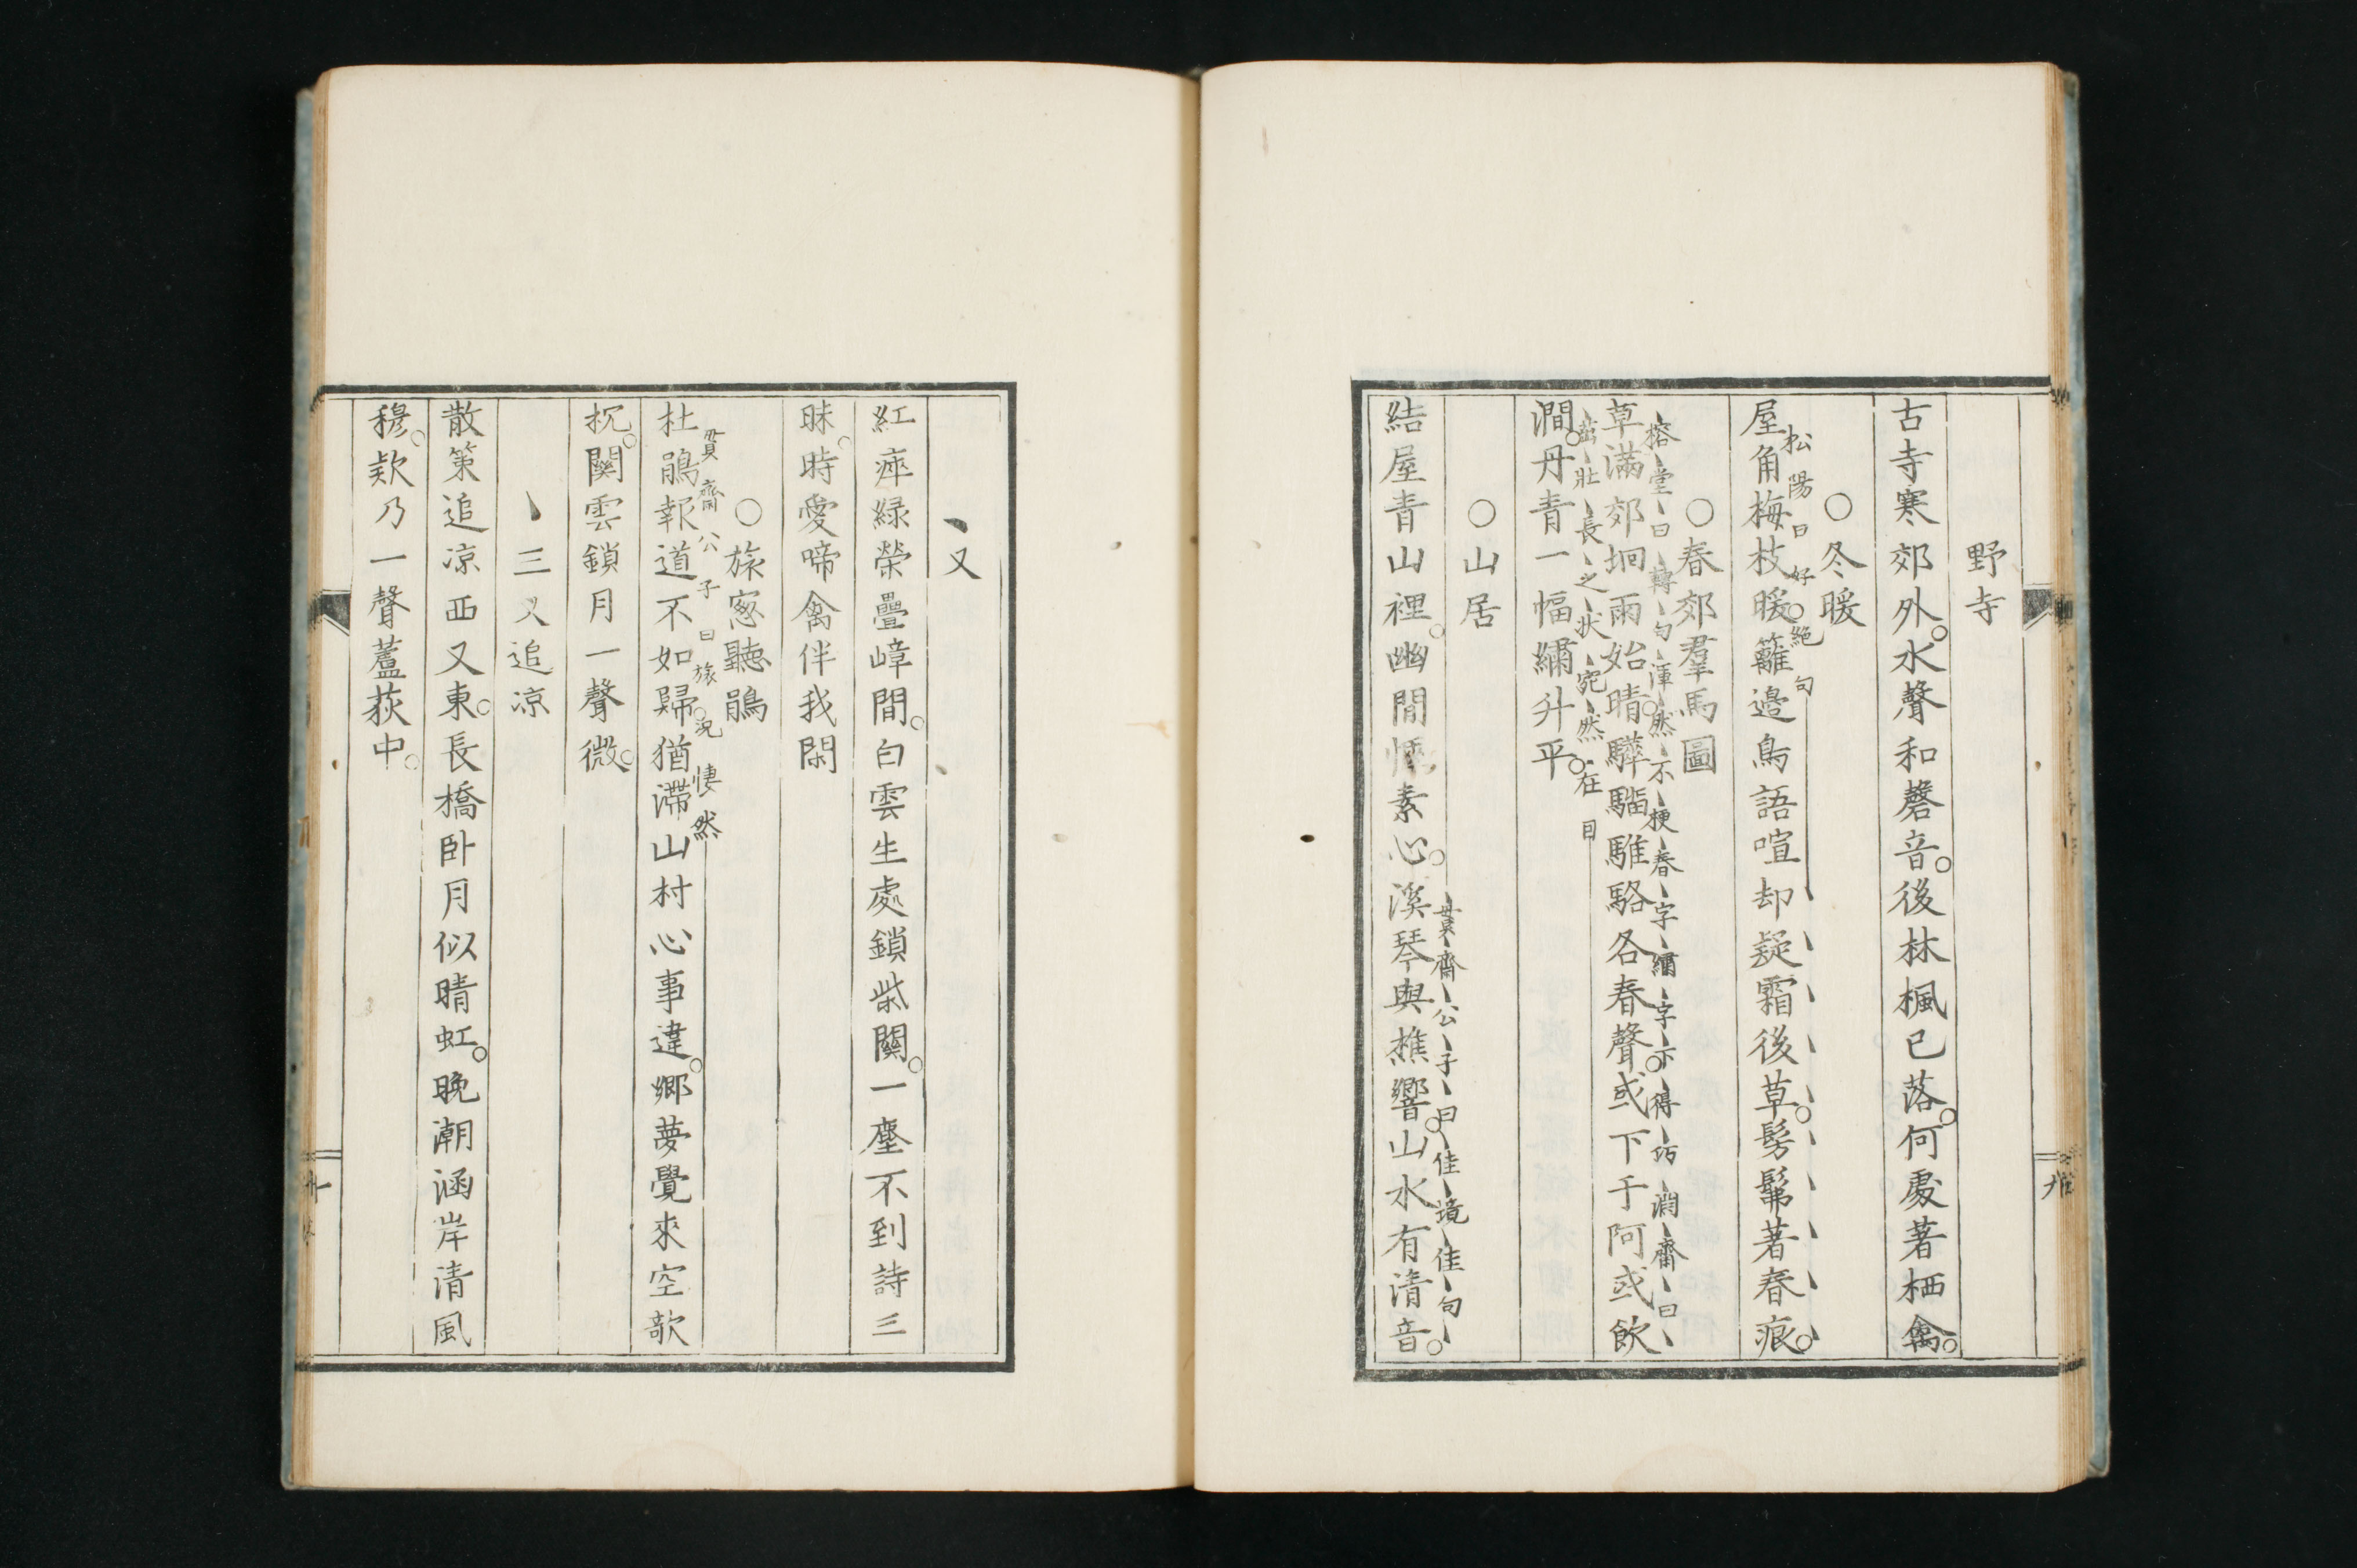 野寺
古寺寒郊外。水聲和磬音。後林楓已落。何處著栖禽。
○冬暖
松陽曰好絕句
屋角梅枝暖。籬邊鳥語喧却疑霜後草。髣髴著春痕。
○春郊羣馬圖
榕堂曰轉句渾然不梗春字繡字亦得巧澗齋曰
草滿郊坰雨始晴。驊騮騅駱各春聲。或下于阿或飲
茁壯長之狀宛然在目
澗。丹青一幅繡升平。
○山居
貫齋公子曰佳境佳句
結屋青山裡。幽閒愜素心。溪琴與樵響。山水有清音。
又
紅瘁綠榮疊嶂間。白雲生處鎖柴關。一塵不到詩三
昧。時愛啼禽伴我閑
○旅窓聽鵑
貫齋公子曰旅況悽然
杜鵑報道不如歸。猶滯山村心事違。鄉夢覺來空欹
枕。關雲鎖月一聲微。
三又追凉
散策追凉西又東。長橋卧月似晴虹。晚潮涵岸清風
穆。欸乃一聲蘆荻中。